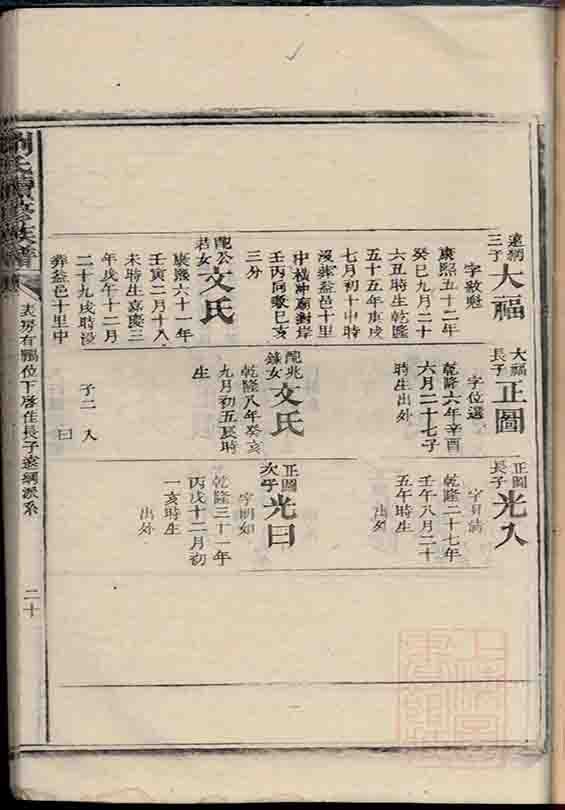 遠綱三子
大福
字敘魁
康熙五十二年
癸巳九月二十
六丑時生乾隆
五十五年庚戌
七月初十申時
沒葬益邑十里
中橫冲廟對岸
壬丙同歇巳亥
三分
配公若女
文氏
康熙六十一年
壬寅二月十八
未時生嘉慶三
年戊午十二月
二十九戌時沒
葬益邑十里中
大福長子
正圖
字位選
乾隆六年辛酉
六月二十七子
時生出外
配兆錄女
文氏
乾隆八年癸亥
九月初五辰時
生
子二 入 曰
正圖長子
光入
字貝請
乾隆二十七年
壬午八月二十
五午時生
出外
正圖次子
光曰
字明如
乾隆三十一年
丙戌十二月初
一亥時生
出外
劉氏續修族譜
表房有鵬位下啓佳長子遠綱派系
二十